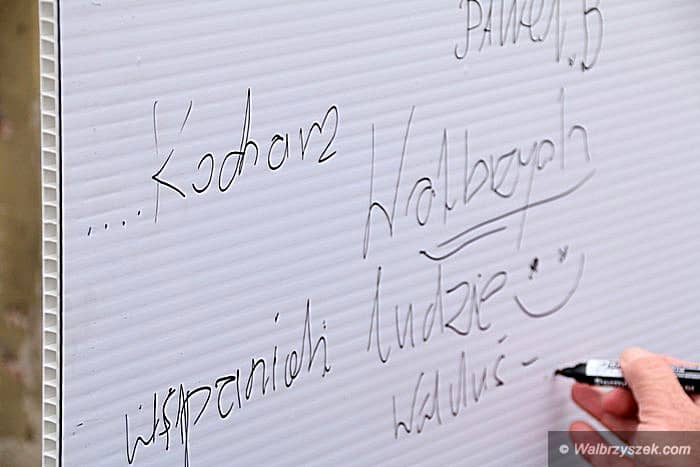 PAWEŁ.B
.... Kocham
Wałbrzych
wspaniali ludzie
Walduś -
© Walbrzyszek.com